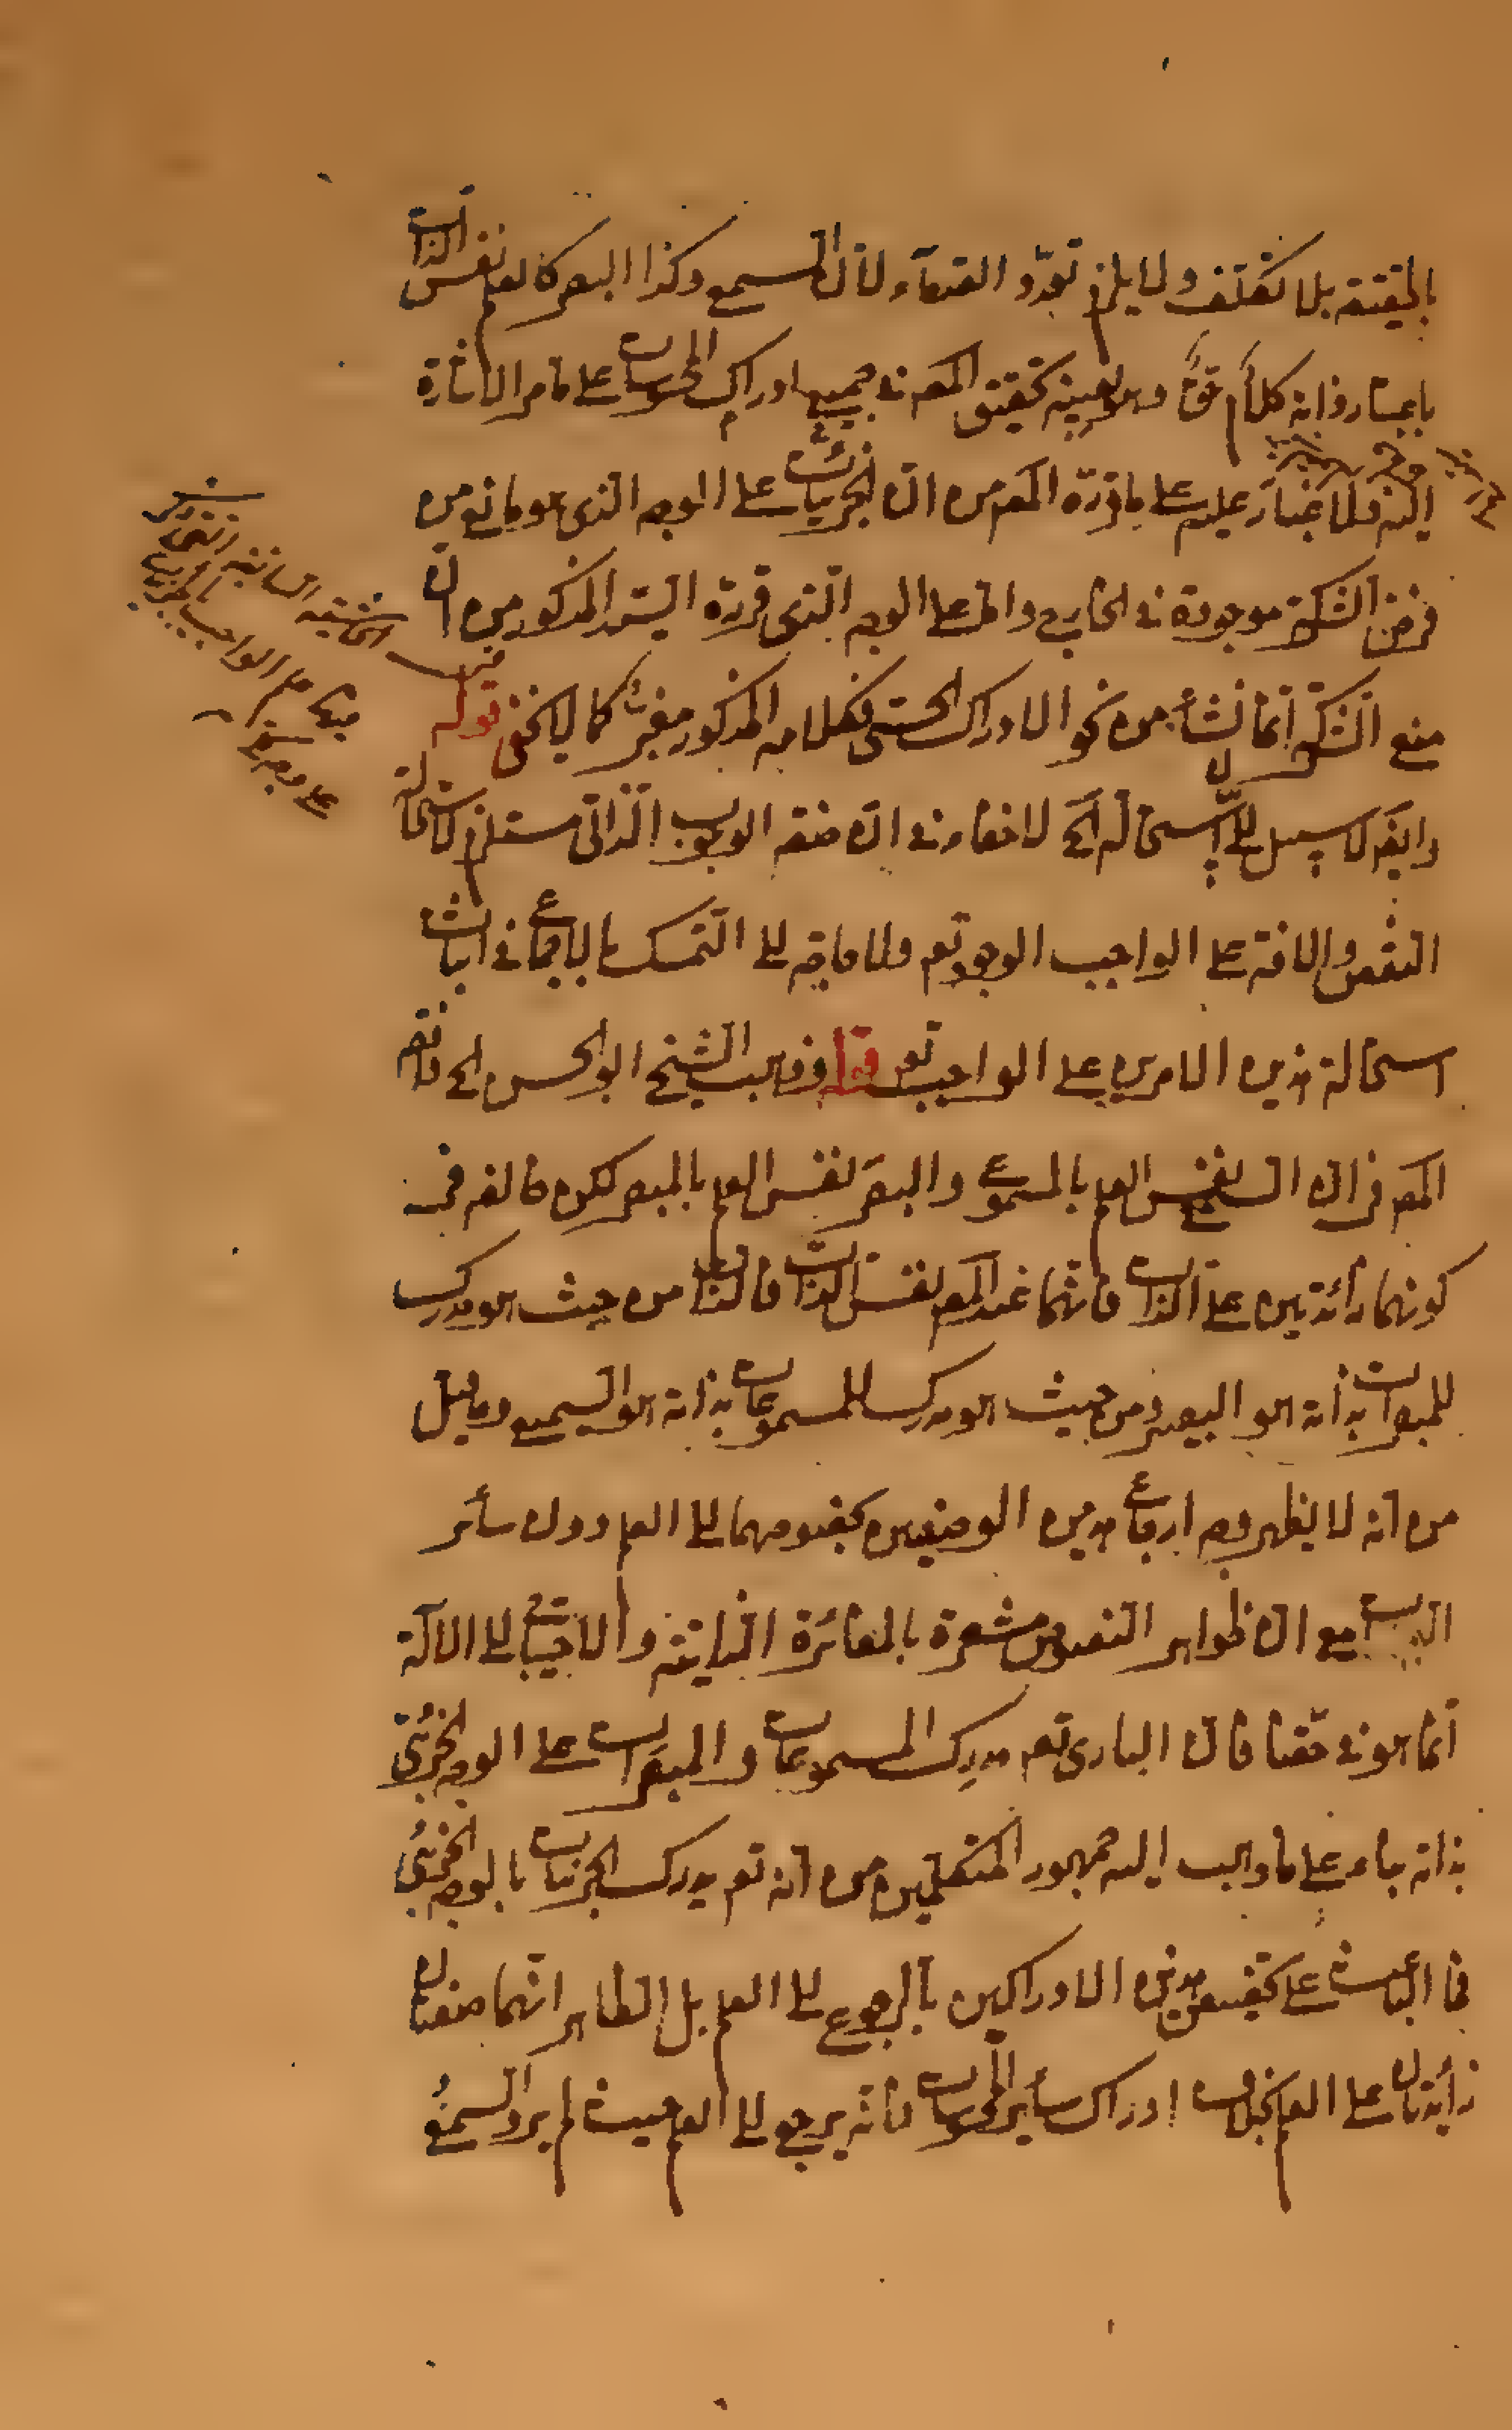 بالحقيقة بلا تكلف ولا يلزم تعدد القدماء لأن السمع وكذا البصر كالعلم نفس الذات
باعتبار وأنه كلام حق وهو بعينه تحقيق المصـ في جميع ادراك المحسوسات على ما مر الاشارة
اليه فلا غبار عليه على ما قرره المصـ من ان الجزئيات على الوجه الذي هو مانع من
فرض الشركة موجودة في الخارج واما على الوجه الذي قرره السيد المذكور من ان
منع الشركة انما نشأ من نحو الادراك الحسي فكلامه المذكور مغبر كما لا يخفى قوله
وايضا لا سبيل الى استحالته الخ لا خفاء في ان صفة الوجوب الذاتي مستلزم لاستحالة
النقص والافة على الواجب الوجود تعـ ولا حاجة الى التمسك بالاجماع في اثبات
استحالة هذين الامرين على الواجب تعـ قوله وذهب الشيخ ابو الحسن الخ وافقه
المصـ في ان السمع نفس العلم بالمسموع والبصر نفس العلم بالمبصر لكن خالفه في
كونهما زائدتين على الذات فانهما عند المصـ نفس الذات فالذات من حيث هو مدرك
للمبصرات بذاته هو البصير ومن حيث هو مدرك للمسموعات بذاته هو السميع وما قيل
من انه لا يظهر وجه ارجاع هذين الوصفين بخصوصهما الى العلم دون سائر
مع ان ظواهر النصوص مشعرة بالمغائرة الذاتية والاحتياج الى الالة
انما هو في حقنا فان الباري تعـ مدرك المسموعات والمبصرات على الوجه الجزئي
بذاته بناء على ما ذهب اليه جمهور المتكلمين من انه تعـ يدرك الجزئيات بالوجه الجزئي
فما الباعث على تخصيص هذين الادراكين بالرجوع الى العلم بل الظاهر انهما صفتان
زائدتان على العلم بخلاف ادراك سائر المحسوسات فانه يرجع الى العلم حيث لم يرد السمع
الحاشية السابقة
علم الواجب بالجزئيات
على وجه